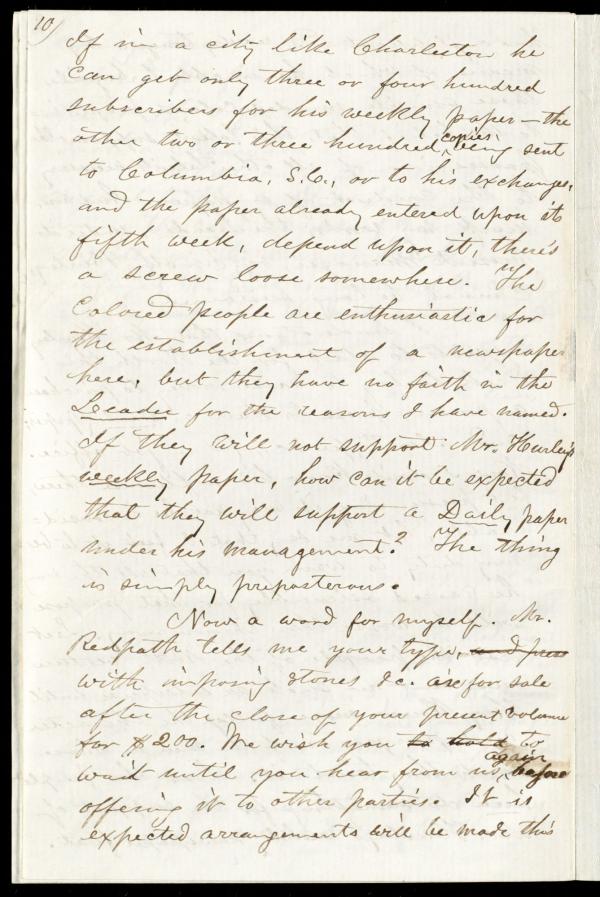 10/
If in a city like Charleston he
can get only three or four hundred
subscribers for his weekly paper — the
other two or three hundred copies being sent
to Columbia, S.C., or to his exchanges,
and the paper already entered upon its
fifth week, depend upon it, there's
a screw loose somewhere. The
Colored people are enthusiastic for
the establishment of a newspaper
here, but they have no faith in the
Leader for the reasons I have named.
If they will not support Mr. Hurley's
weekly paper, how can it be expected
that they will support a Daily paper
under his management? The thing
is simply preposterous.
Now a word for myself. Mr.
Redpath tells me your type, and press
with imposing stones &c. are for sale
after the close of your present volume
for $200. We wish you to hold to
wait until you hear from us again before
offering it to other parties. It is
expected arrangements will be made this